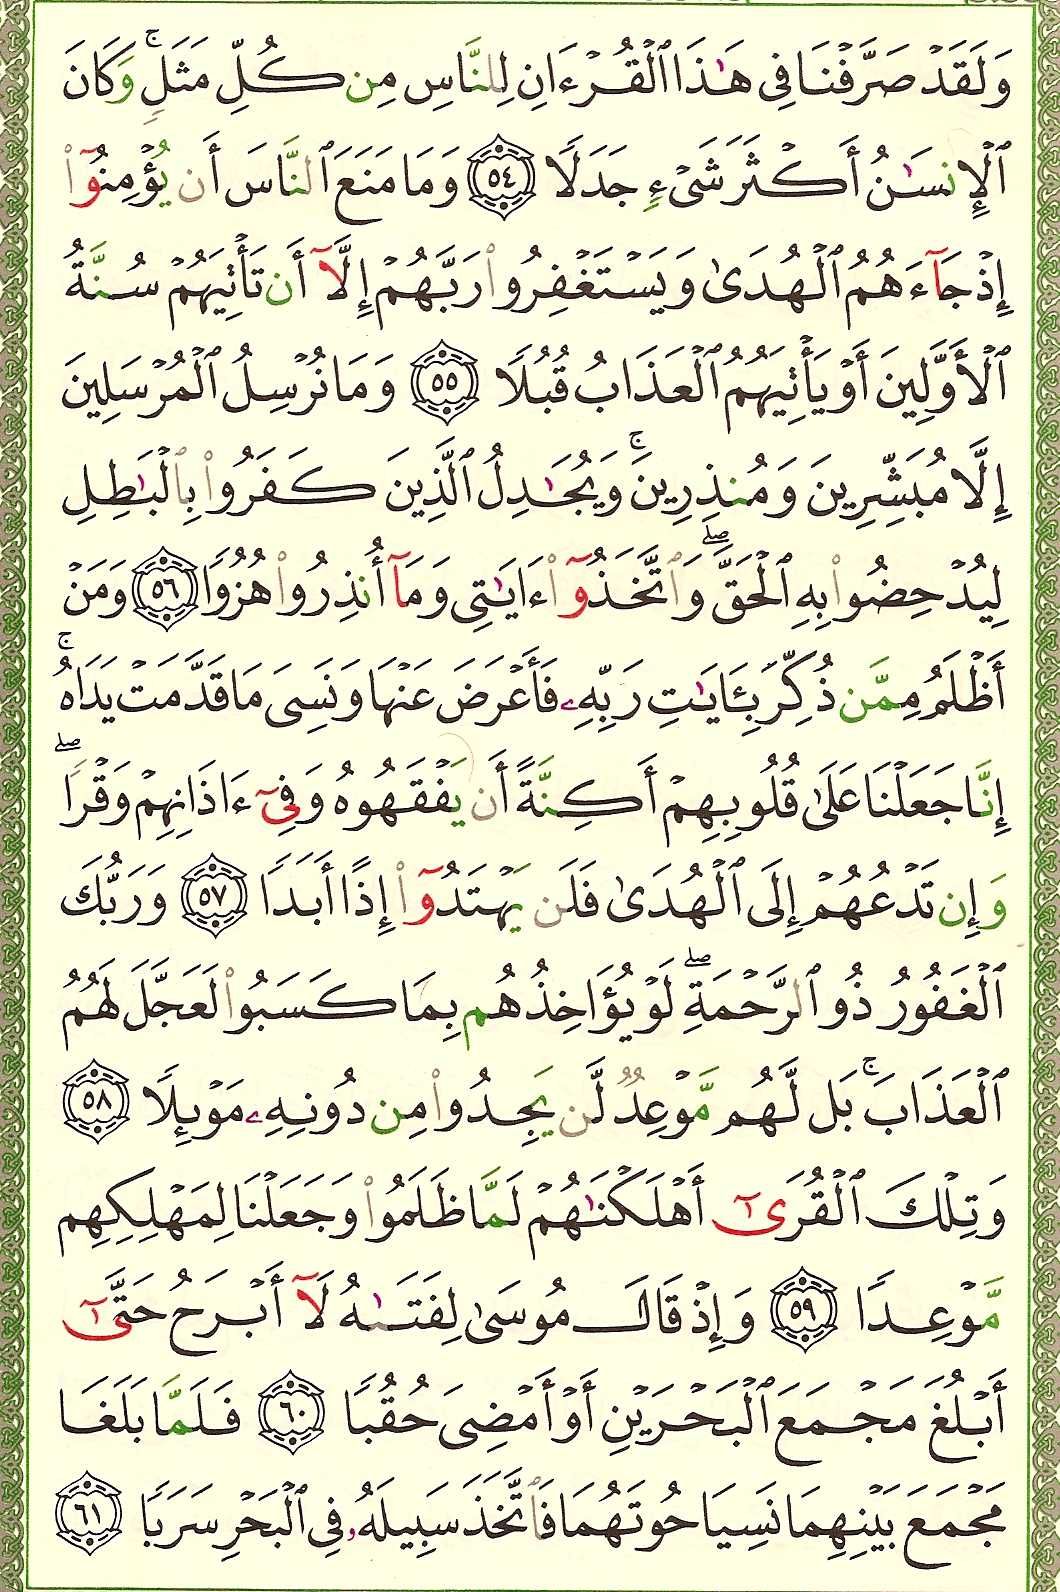 وَلَقَدۡ صَرَّفۡنَا فِی هَـٰذَا ٱلۡقُرۡءَانِ لِلنَّاسِ مِن كُلِّ مَثَلࣲۚ وَكَانَ
ٱلۡإِنسَـٰنُ أَكۡثَرَ شَیۡءࣲ جَدَلࣰا ٥٤ وَمَا مَنَعَ ٱلنَّاسَ أَن یُؤۡمِنُوۤا۟
إِذۡ جَاۤءَهُمُ ٱلۡهُدَىٰ وَیَسۡتَغۡفِرُوا۟ رَبَّهُمۡ إِلَّاۤ أَن تَأۡتِیَهُمۡ سُنَّةُ
ٱلۡأَوَّلِینَ أَوۡ یَأۡتِیَهُمُ ٱلۡعَذَابُ قُبُلࣰا ٥٥ وَمَا نُرۡسِلُ ٱلۡمُرۡسَلِینَ
إِلَّا مُبَشِّرِینَ وَمُنذِرِینَۚ وَیُجَـٰدِلُ ٱلَّذِینَ كَفَرُوا۟ بِٱلۡبَـٰطِلِ
لِیُدۡحِضُوا۟ بِهِ ٱلۡحَقَّۖ وَٱتَّخَذُوۤا۟ ءَایَـٰتِی وَمَاۤ أُنذِرُوا۟ هُزُوࣰا ٥٦ وَمَنۡ
أَظۡلَمُ مِمَّن ذُكِّرَ بِـَٔایَـٰتِ رَبِّهِۦ فَأَعۡرَضَ عَنۡهَا وَنَسِیَ مَا قَدَّمَتۡ یَدَاهُۚ
إِنَّا جَعَلۡنَا عَلَىٰ قُلُوبِهِمۡ أَكِنَّةً أَن یَفۡقَهُوهُ وَفِیۤ ءَاذَانِهِمۡ وَقۡرࣰاۖ
وَإِن تَدۡعُهُمۡ إِلَى ٱلۡهُدَىٰ فَلَن یَهۡتَدُوۤا۟ إِذًا أَبَدࣰا ٥٧ وَرَبُّكَ
ٱلۡغَفُورُ ذُو ٱلرَّحۡمَةِۖ لَوۡ یُؤَاخِذُهُم بِمَا كَسَبُوا۟ لَعَجَّلَ لَهُمُ
ٱلۡعَذَابَۚ بَل لَّهُم مَّوۡعِدࣱ لَّن یَجِدُوا۟ مِن دُونِهِۦ مَوۡىِٕلࣰا ٥٨
وَتِلۡكَ ٱلۡقُرَىٰۤ أَهۡلَكۡنَـٰهُمۡ لَمَّا ظَلَمُوا۟ وَجَعَلۡنَا لِمَهۡلِكِهِم
مَّوۡعِدࣰا ٥٩ وَإِذۡ قَالَ مُوسَىٰ لِفَتَىٰهُ لَاۤ أَبۡرَحُ حَتَّىٰۤ
أَبۡلُغَ مَجۡمَعَ ٱلۡبَحۡرَیۡنِ أَوۡ أَمۡضِیَ حُقُبࣰا ٦٠ فَلَمَّا بَلَغَا
مَجۡمَعَ بَیۡنِهِمَا نَسِیَا حُوتَهُمَا فَٱتَّخَذَ سَبِیلَهُۥ فِی ٱلۡبَحۡرِ سَرَبࣰا ٦١